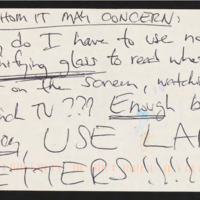 HOM IT MAY CONCERN:
do I have to use
nifying glass to read wha
on the screen, watchi
TV ??? Enough
USE LA
ETTERS!!!!